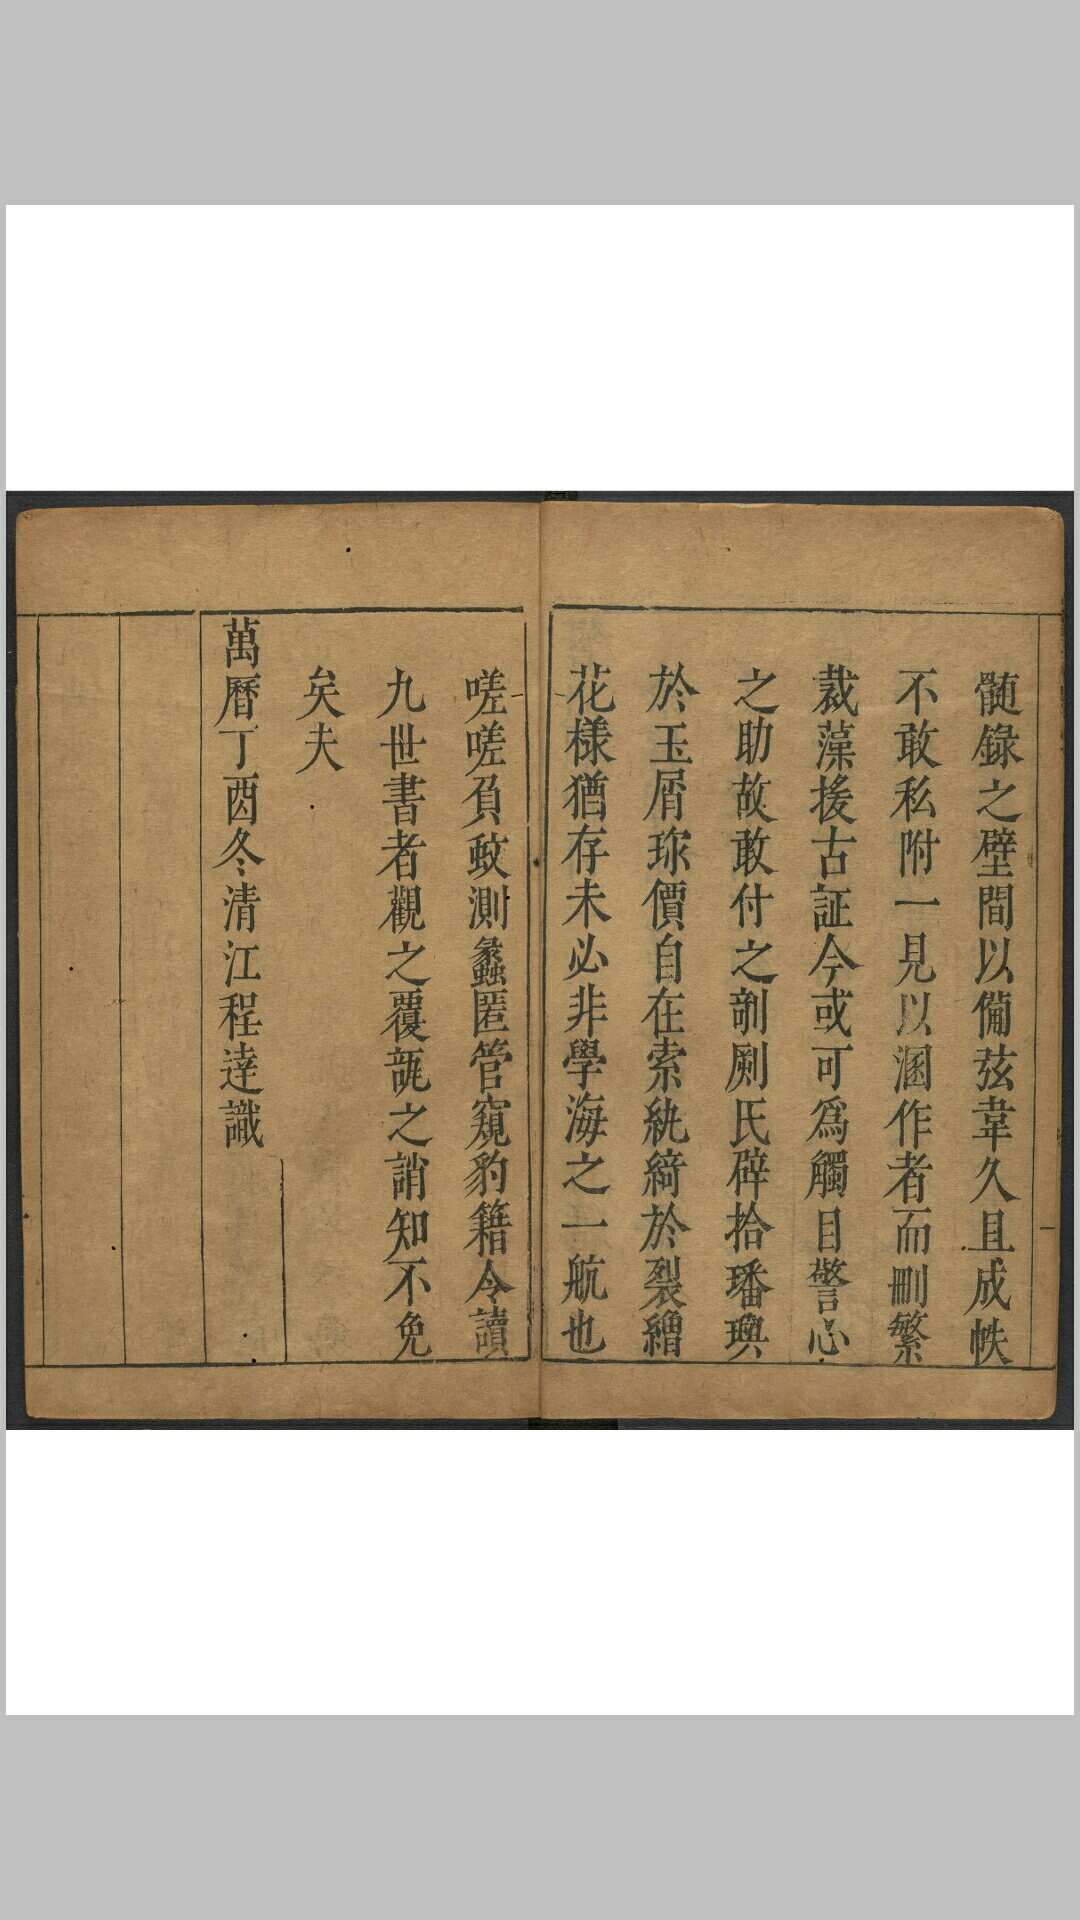 髄錄之壁間以備弦韋久且成帙
不敢私附一見以溷作者而刪繁
裁藻援古証今或可為觸目警心
之助故敢付之剞劂氏辟拾璠璵
於玉屑珎價自在索紈綺於裂繒
花樣猶存未必非學海之一航也
嗟嗟負蚊測蠡匿管窺豹籍令讀
九世書者觀之覆瓿之誚知不免
矣夫
萬曆丁酉冬清江程達識